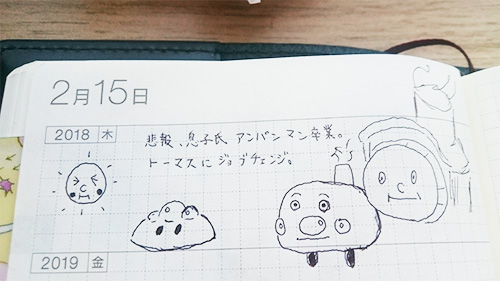 2月15日
2018 木
悲報、息子氏 アンパンマン卒業。
トーマスにジョブチェンジ。
2019 金